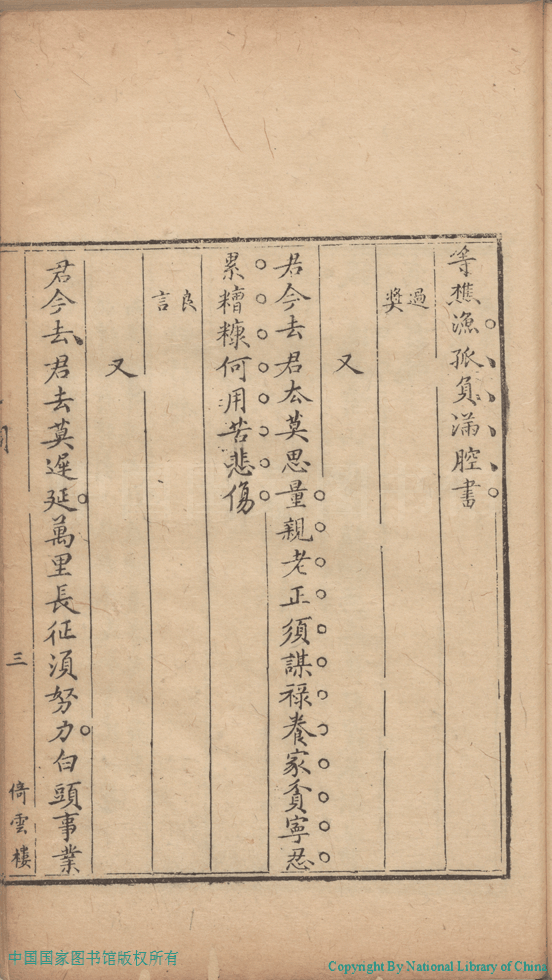 等樵漁孤負滿腔書
過獎
又
君今去君去莫思量親老正須謀祿養家貧寧忍
累糟糠何用苦悲傷
良言
又
君今去君去莫遲延萬里長征須努力白頭事業
三
倚雲樓
中国国家图书馆版权所有
Copyright By National Library of China